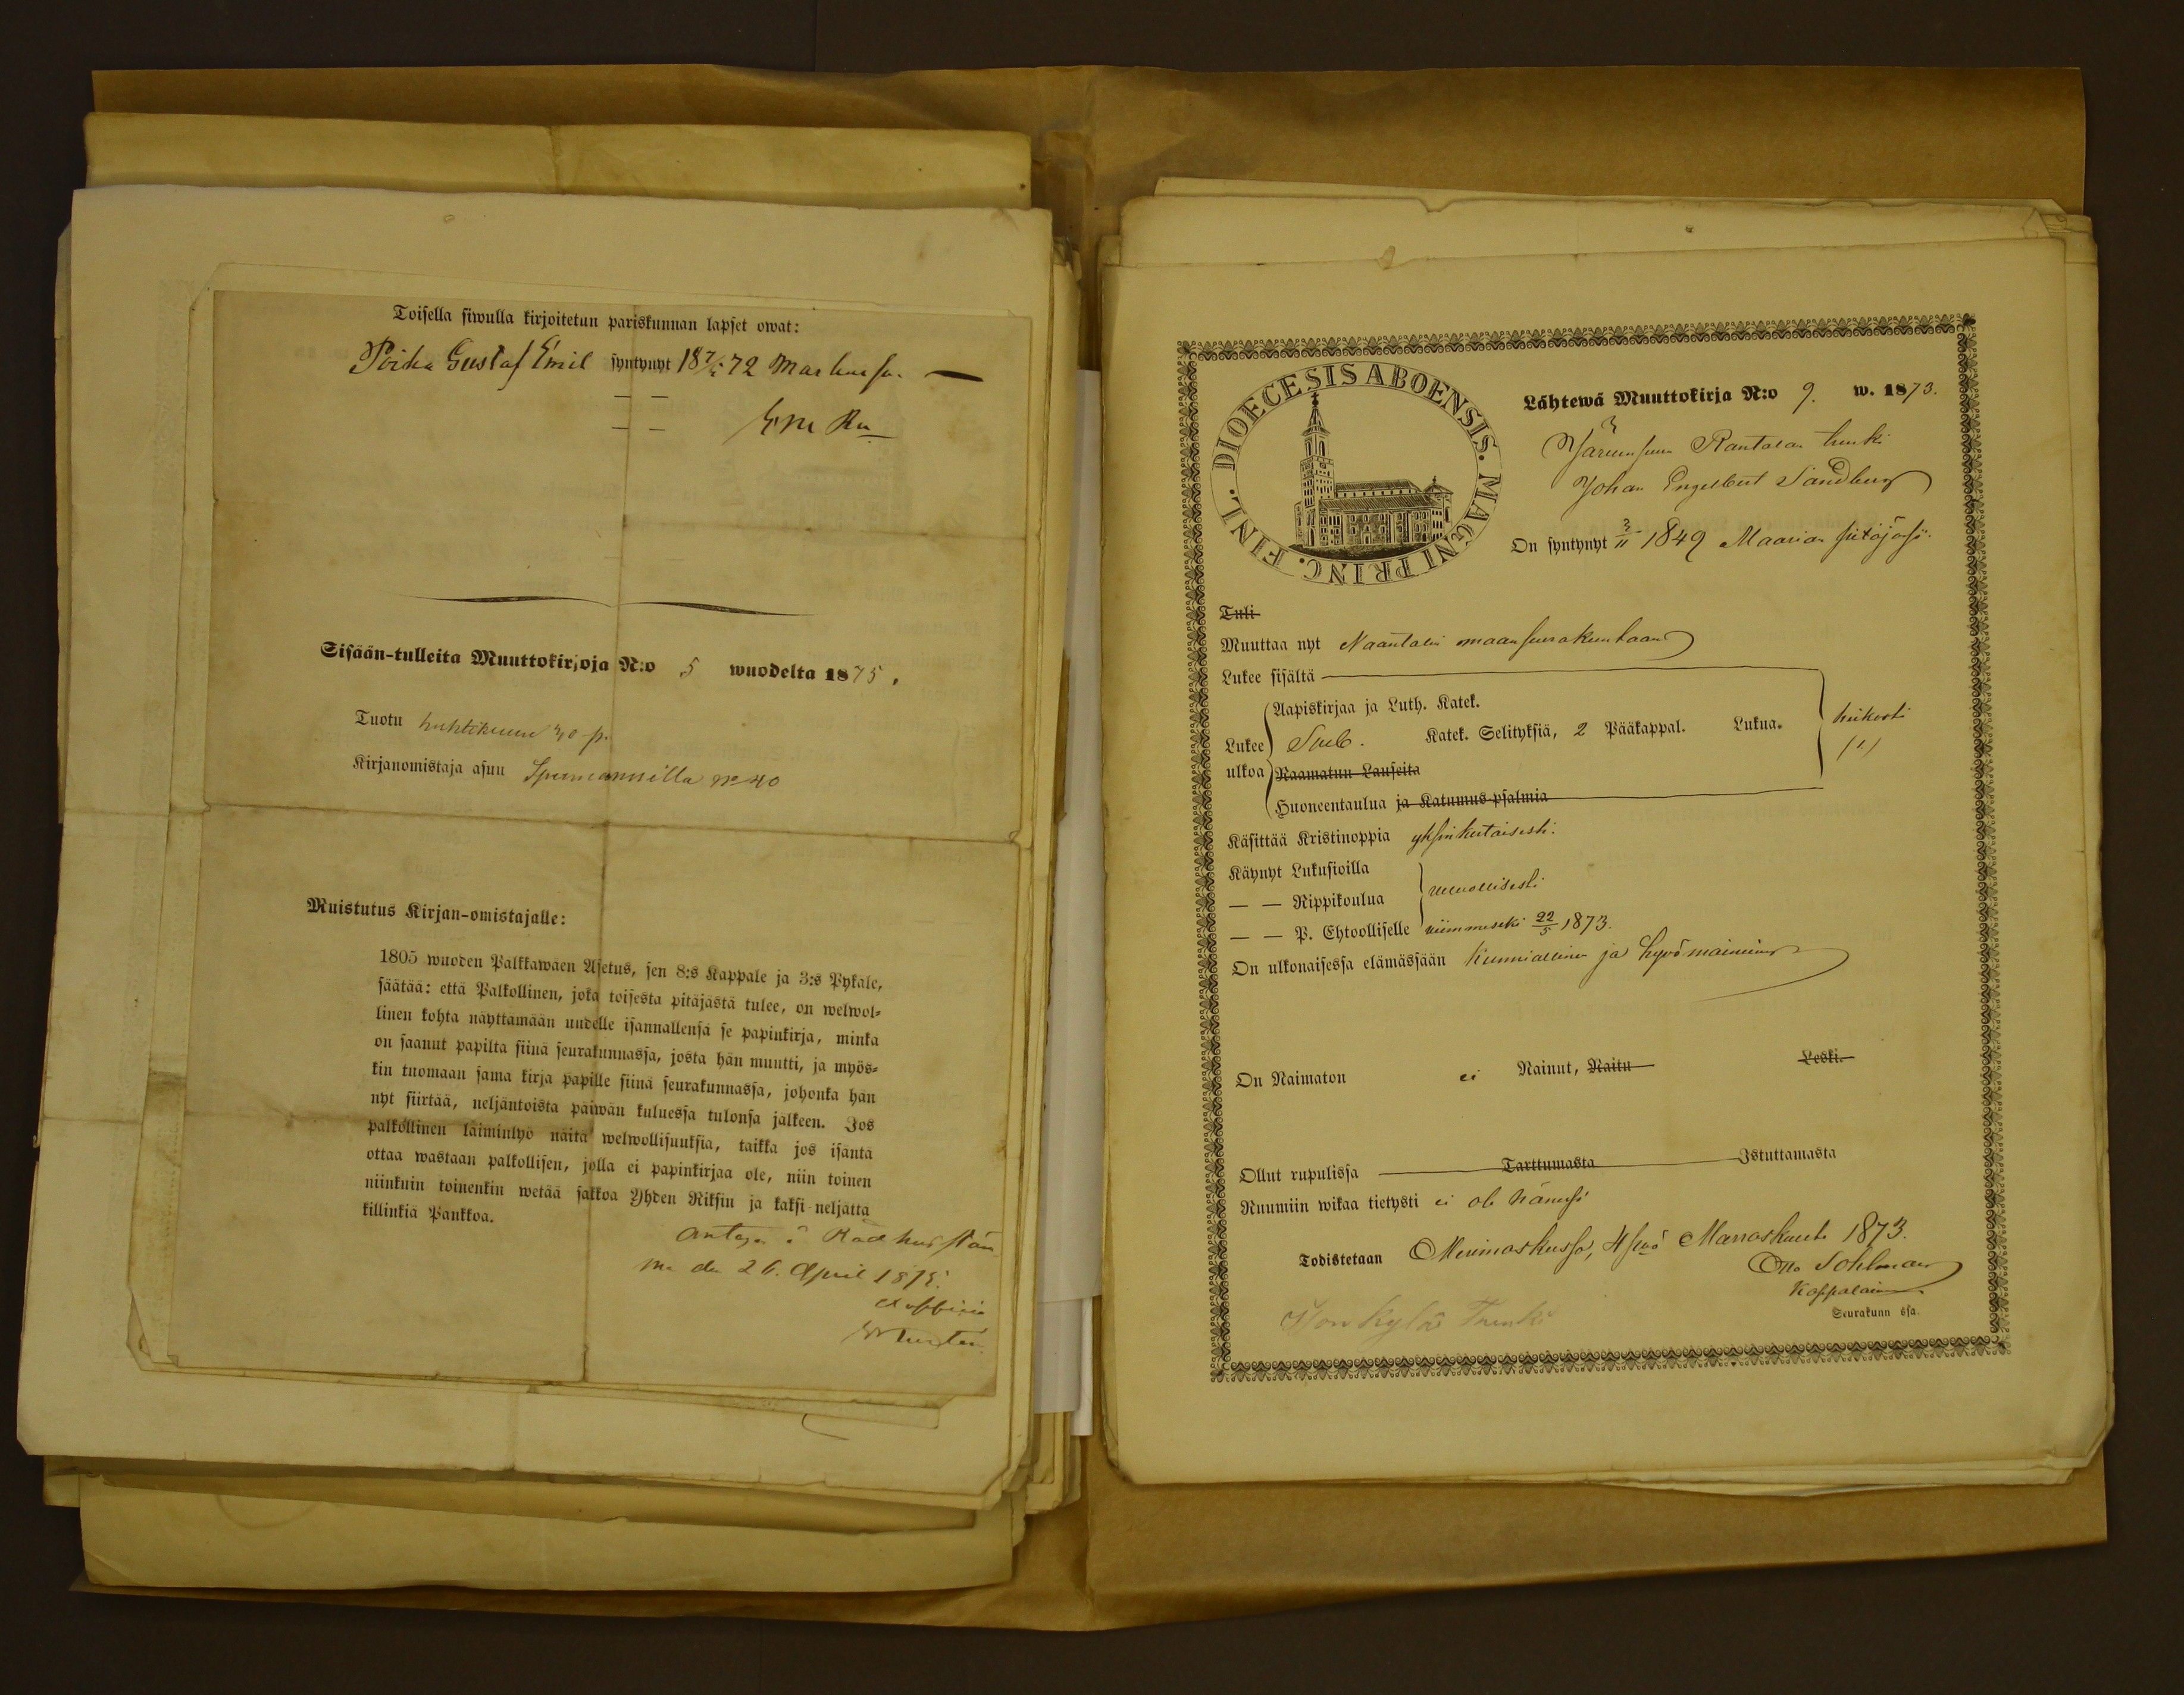 Toisella siwulla kirjoitetun pariskunnan lapset owat:
Poika Gustaf Emil syntynyt 18 7/1 72 Maskussa. —
— —
— —
Sisään-tulleita Muuttokirjoja N:o 5 wuodelta 1875.
Tuotu huhtikuun 30 p.
Kirjanomistaja asuu No 40
Muistutus Kirjan-omistajalle:
1805 wuoden Palkkawäen Asetus, sen 8:s Kappale ja 3:s Pykäle,
säätää: että Palkollinen, joka toisesta pitäjästä tulee, on welwol-
linen kohta näyttämään uudelle isännällensä se papinkirja, minkä
on saanut papilta siinä seurakunnassa, josta hän muutti, ja myös-
kin tuomaan sama kirja papille siinä seurakunnassa, johonka hän
nyt siirtää, neljäntoista päiwän kuluessa tulonsa jälkeen. Jos
palkollinen laiminlyö näitä welwollisuuksia, taikka jos isäntä
ottaa wastaan palkollisen, jolla ei papinkirjaa ole, niin toinen
niinkuin toinenkin wetää sakkoa Yhden Riksin ja kaksi neljättä
killinkiä Pankkoa.
Antagen i Rådhus stäm
ma den 26. April 1875.
DIOECESIS ABOENSIS. MAGNI PRINC. FINL.
Lähtewä Muuttokirja N:o 9. w. 1873.
Rantalan renki
Johan Engelbert Sandberg
On syntynyt 3/11 1849 Maarian pitäjäsä.
Tuli
Muuttaa nyt Naantalin maaseurakuntaan
Lukee sisältä
Aapiskirjaa ja Luth. Katek.
Lukee Katek. Selityksiä, 2 Pääkappal. Lukua. heikosti
ulkoa Raamatun Lauseita
Huoneentaulua ja Katumus-psalmia
Käsittää Kristinoppia yksinkertaisesti.
Käynyt Lukusioilla
— — Rippikoulua
— — P. Ehtoolliselle viimmeseksi 22/5 1873.
On ulkonaisessa elämässään kunniallinen ja hywämaininen
On Naimaton ei Nainut, Naitu Leski.
Ollut rupulissa Tarttumasta Istuttamasta
Ruumiin wikaa tietysti ei ole hänesä
Todistetaan Merimaskussa, 4 p:nä Marraskuuta 1873.
Otto Sohlman
Kappalainen
Seurakunn ssa.